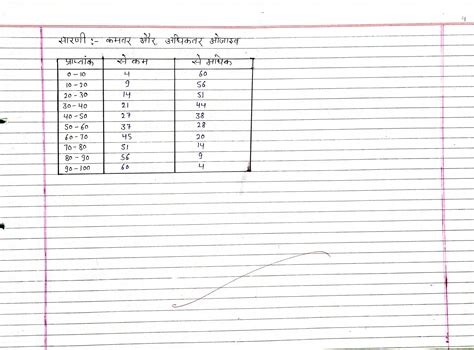 सारणी :- कमतर और अधिकतर ओजाइव
प्राप्तांक से कम से अधिक
0-10 4 60
10-20 9 56
20-30 14 51
30-40 21 44
40-50 27 38
50-60 37 28
60-70 45 20
70-80 51 14
80-90 56 9
90-100 60 4